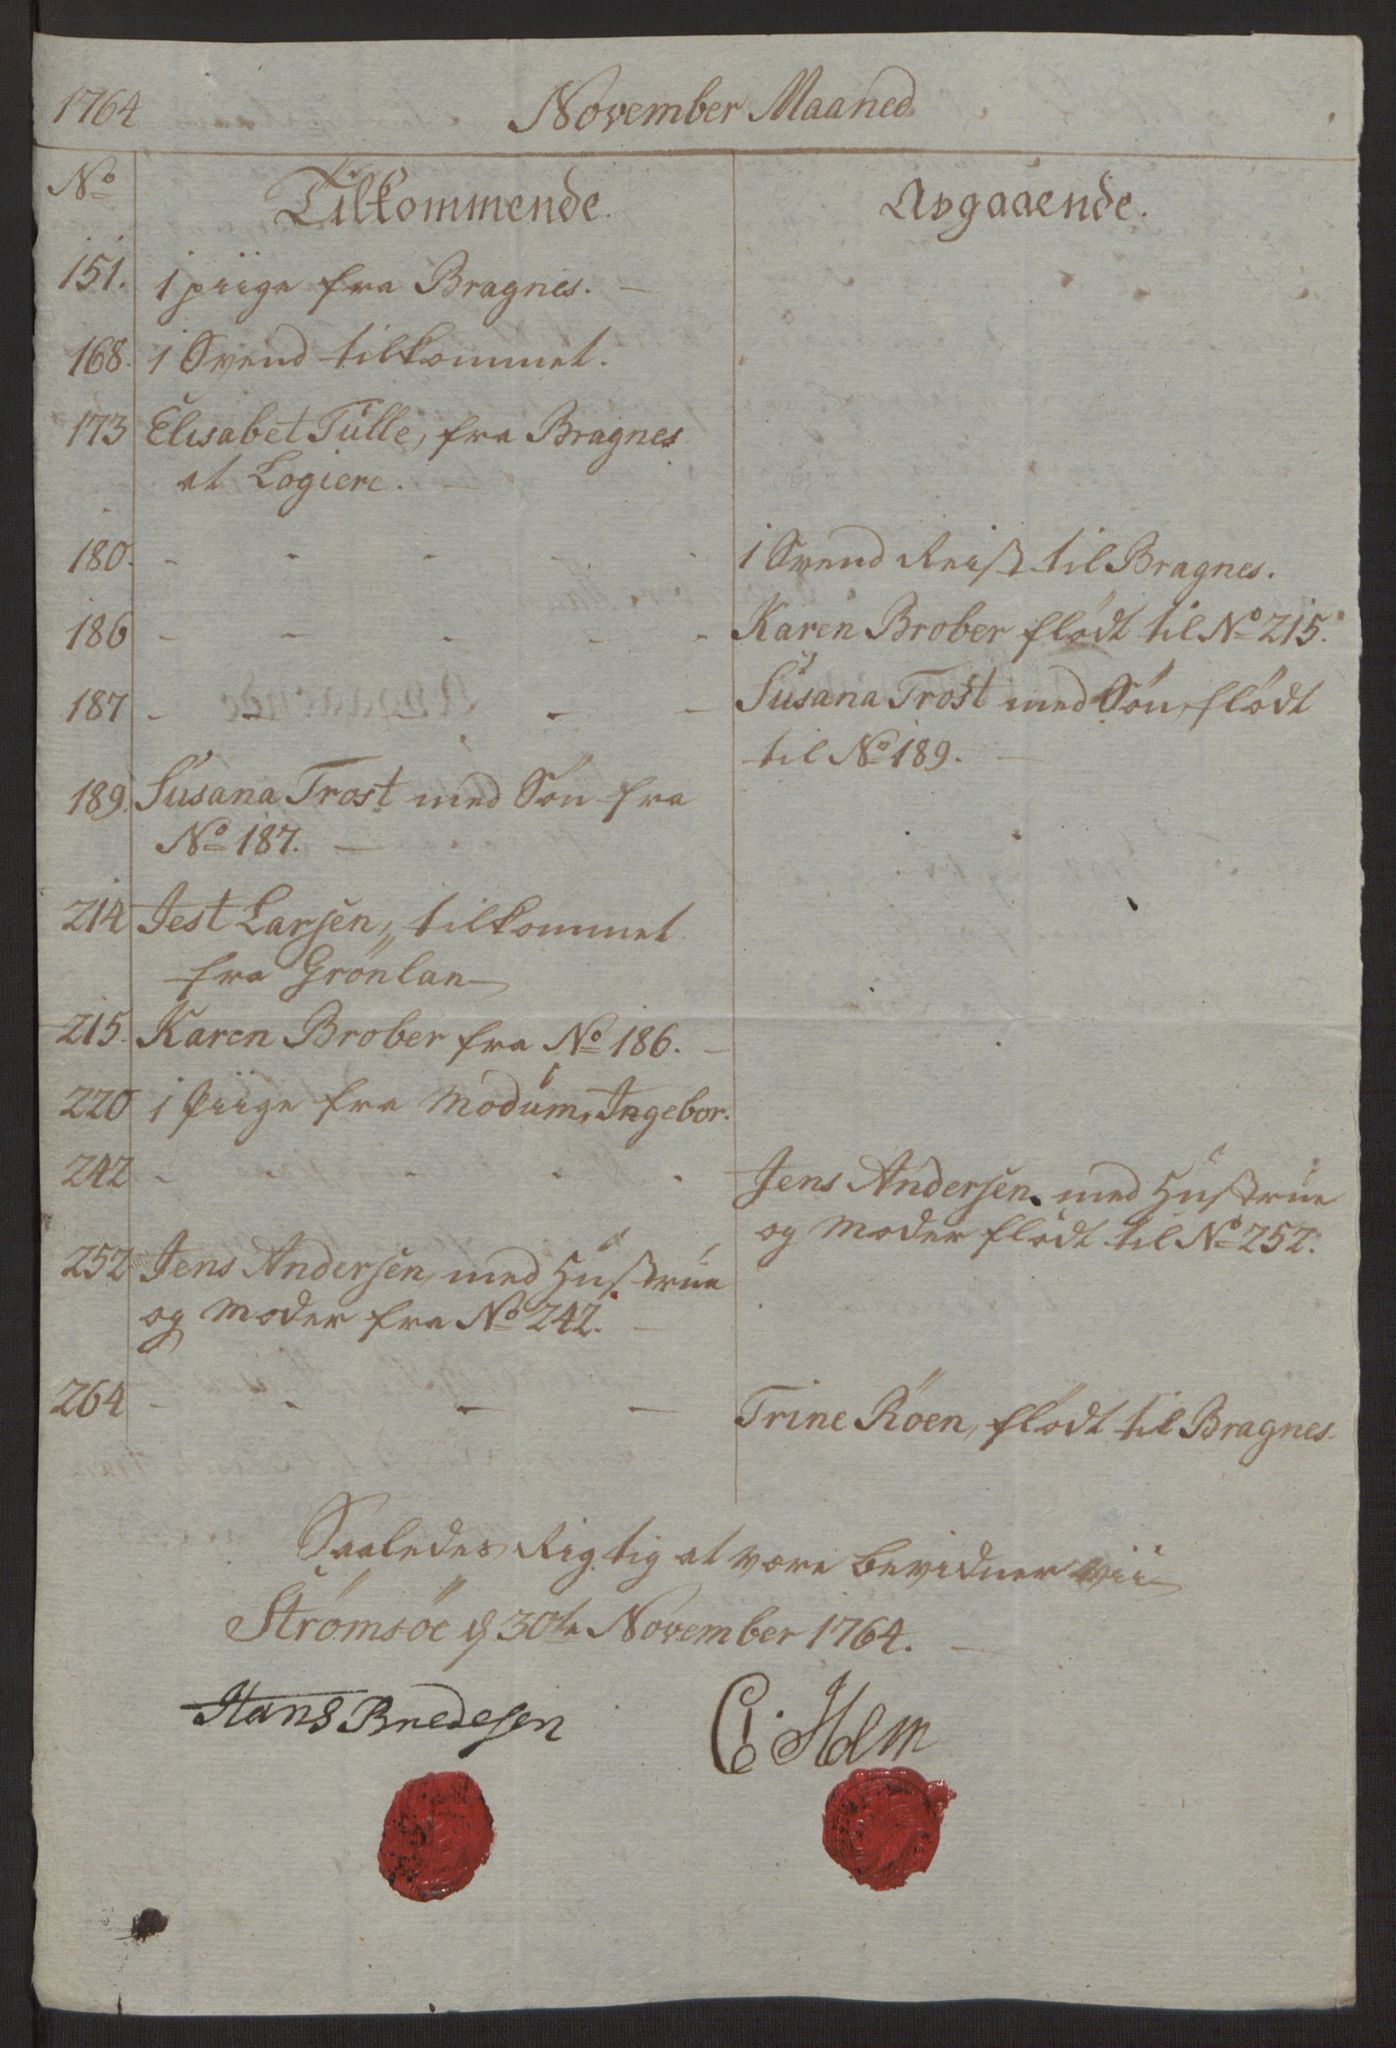 1764 November Maaned
No Tilkommende. Avgaaende.
151. 1 piige fra Bragnes. —
168. 1 Svend tilkommet.
173 Elisabet Tülle, fra Bragnes
at Logiere. —
180. - - - - - 1 Svend Reist til Bragnes.
186 - - - - - Karen Brober flödt til No 215.
187 - - - - - Susana Trost med Sön flödt
til No 189. —
189. Susana Trost med Sön fra
No 187. —
214 Jest Larsen, tilkommet
fra Grönlan
215. Karen Brober fra No 186. —
220 1 Piige fra Modum, Ingebor.
242 - - - - - Jens Andersen med Hustrue
og Moder flödt til No 252.
252 Jens Andersen, med Hustrue
og Moder fra No 242. —
264 - - - - Trine Röen, flödt til Bragnes.
Saaledes Rigtig at være bevidner vii
Strömsöe d 30te November 1764. —
Hans Bredesen C: Holm